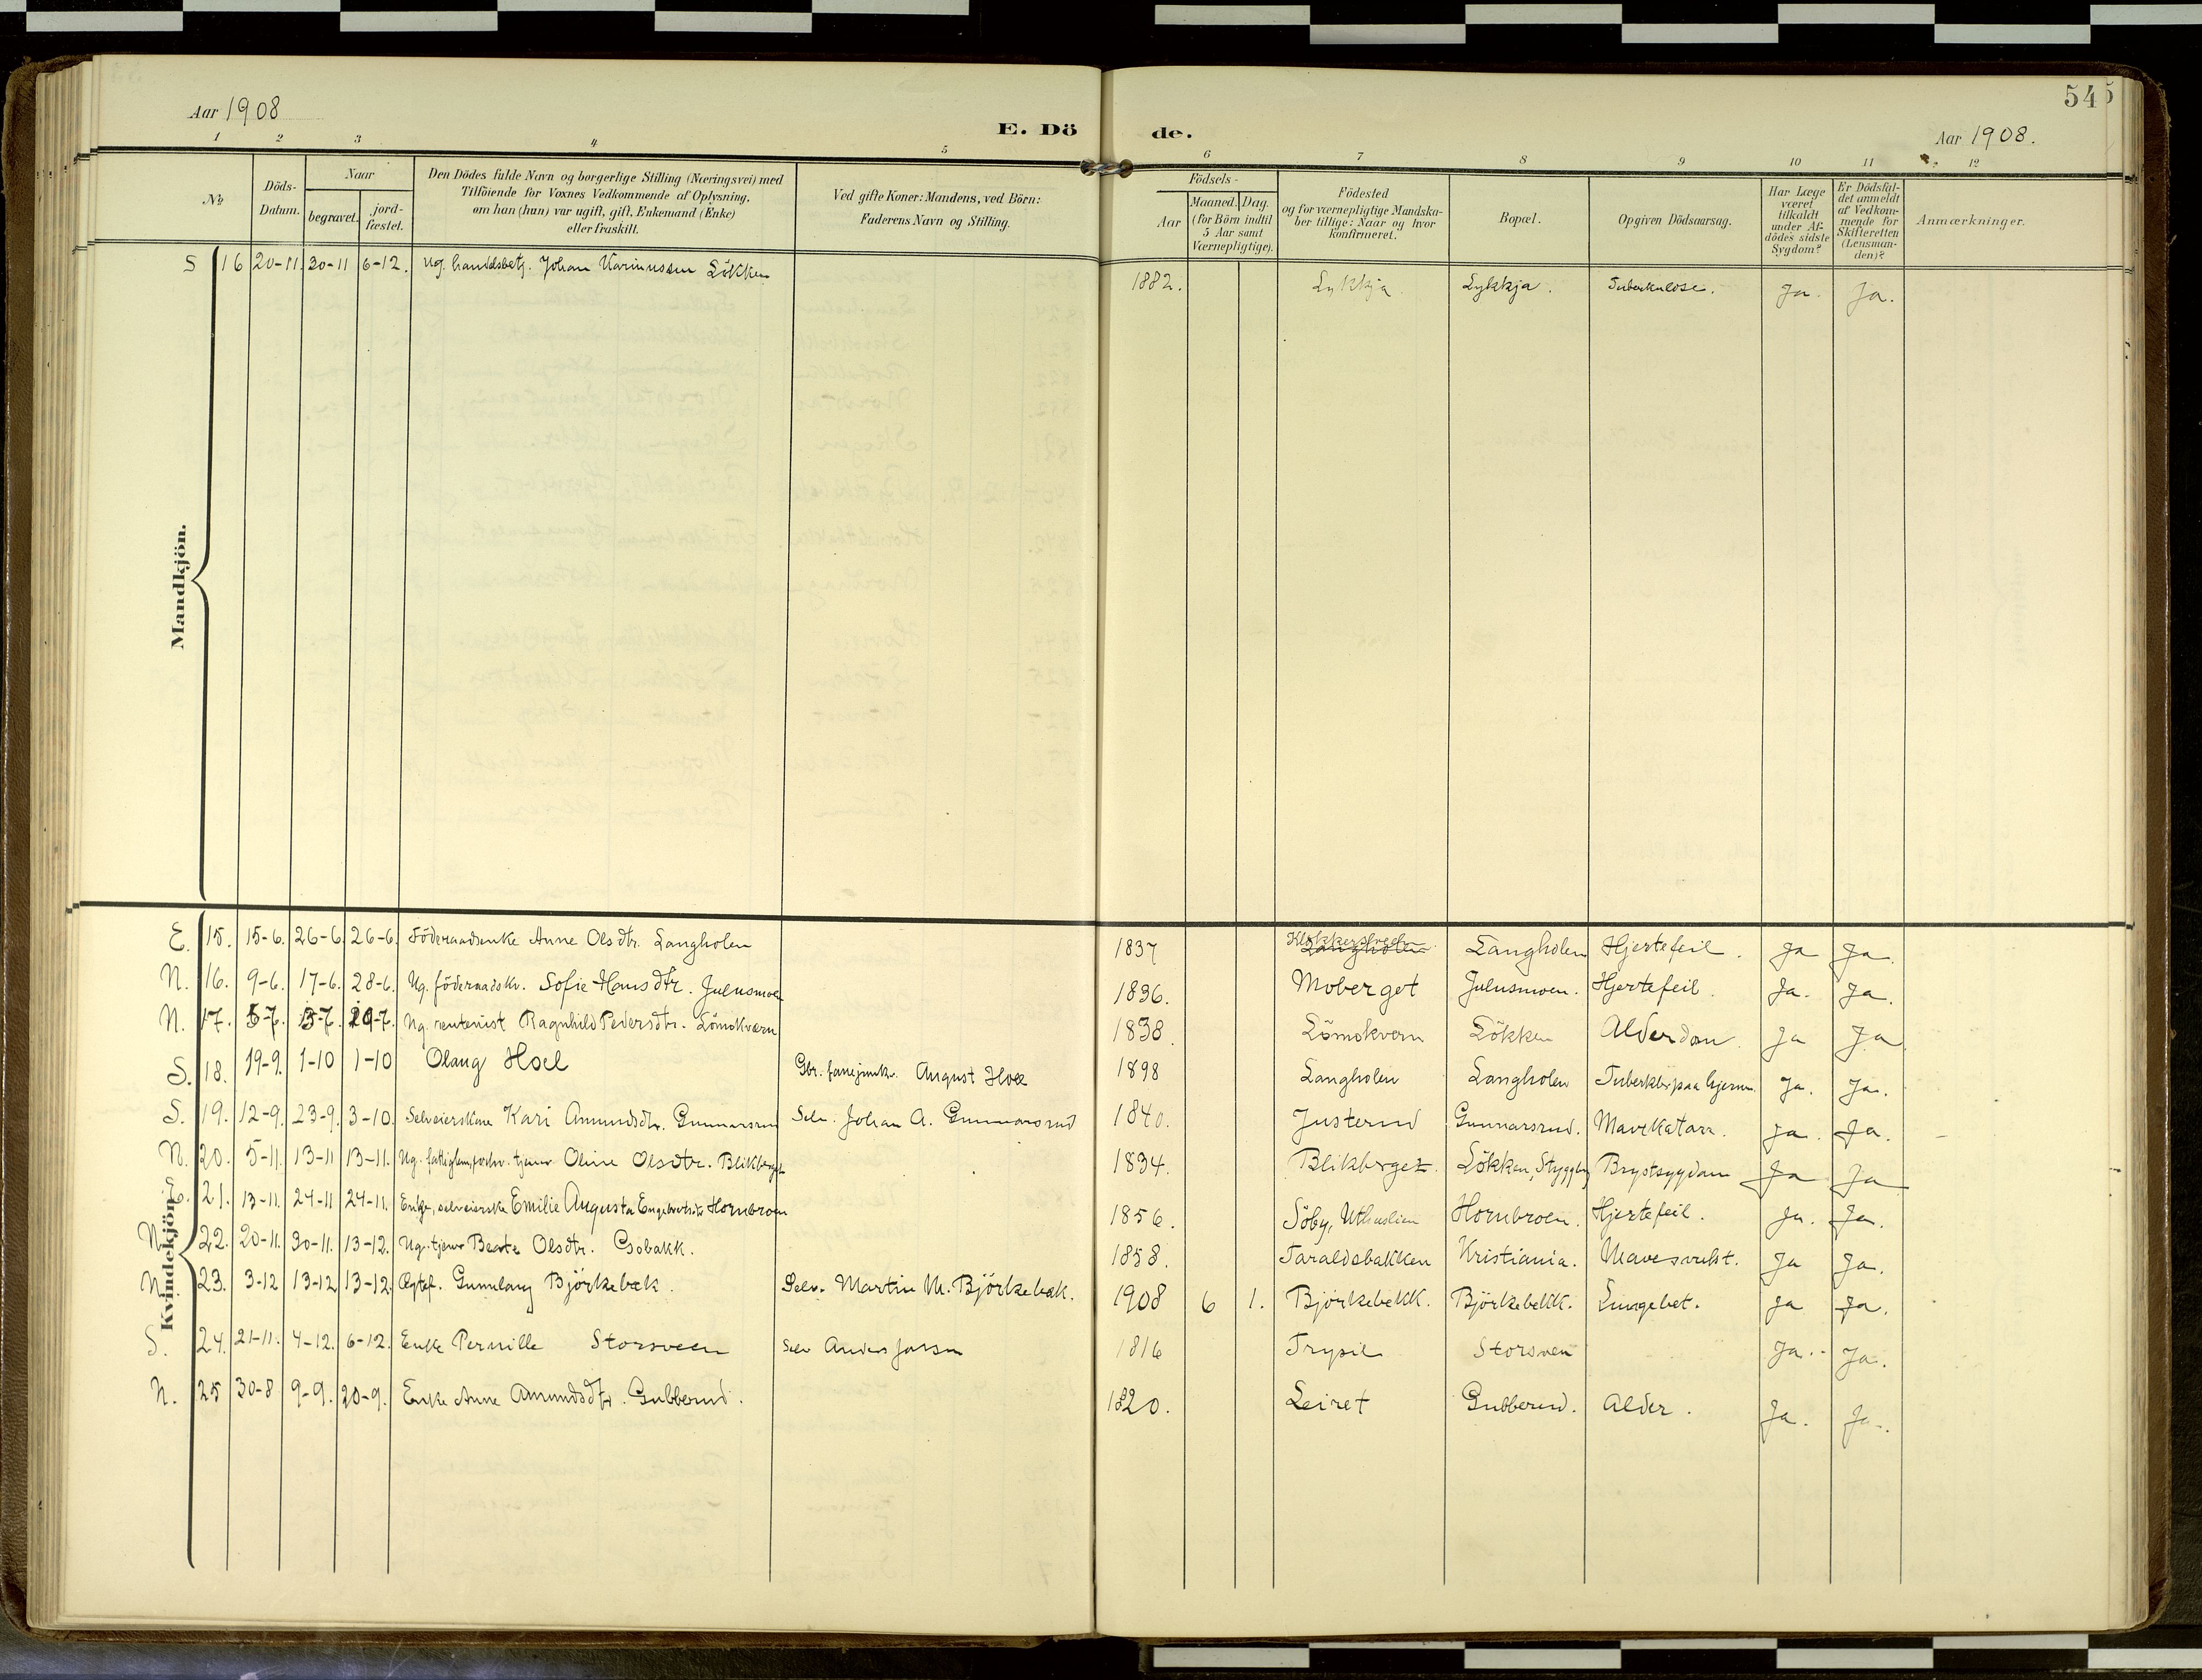 545
Aar 1908
E. Dö de.
Aar 1908.
1 2 3 4 5 6 7 8 9 10 11 12
No
Döds-Datum.
Naar
begravet.
jord-fæstet.
Den Dödes fulde Navn og borgerlige Stilling (Næringsvei) med
Tilföiende for Voxnes Vedkommende af Oplysning,
om han (hun) var ugift, gift, Enkemand (Enke)
eller fraskilt.
Ved gifte Koner: Mandens, ved Börn:
Faderens Navn og Stilling.
Födsels-
Aar
Maaned. Dag.
(for Börn indtil
5 Aar samt
Værnepligtige).
Födested
og for værnepligtige Mandska-
ber tillige: Naar og hvor
konfirmeret.
Bopæl.
Opgiven Dödsaarsag.
Har Læge
været
tilkaldt
under Af-
dödes sidste
Sygdom?
Er Dödsfal-
det anmeldt
af Vedkom-
mende for
Skifteretten
(Lensman-
den)?
Anmærkninger.
Mandkjön.
S 16 20-11 30-11 6-12. Ug. handelsbetj. Johan Karinussen Lökken 1882. Lykkja Lykkja. Tuberkulose. Ja. Ja.
Kvindekjön.
E. 15. 15-6. 26-6. 26-6. Föderaadsenke Anne Olsdtr. Langholen 1837 Langholen Langholen Hjertefeil. Ja Ja.
N. 16. 9-6. 17-6. 28-6. Ug. föderaadsk. Sofie Hansdtr. Julusmoen 1836. Moberget Julusmoen. Hjertefeil. Ja. Ja.
N. 17. 5-7. 13-7. Ug. rentenist Ragnhild Pedersdtr. Lömokværn 1838. Lömokvern Lökken Alderdom. Ja Ja
S. 18. 19-9. 1-10 1-10 Olaug Hoel Gbr. fanejunk. August Hoel 1898 Langholen Langholen Tuberkler paa hjernen. Ja. Ja.
S. 19. 12-9. 23-9. 3-10. Selveierskone Kari Amundsdtr. Gunnarsrud Selv. Johan A. Gunnarsrud 1840. Justerud Gunnarsrud. Mavekatarr. Ja. Ja.
N. 20. 5-11. 13-11 13-11. Ug. tjener Oline Olsdtr. Blikberget 1834. Blikberget. Lökken, Styggb Brystsygdom Ja Ja
E. 21. 13-11. 24-11 24-11. Enke, selveierske Emilie Augusta Engebretsdtr Hornbroen 1856. Söby, Uthuslien Hornbroen. Hjertefeil. Ja. Ja.
N. 22. 20-11. 30-11. 13-12. Ug. tjener Beate Olsdtr. Csobakk. 1858. Taraldsbakken Kristiania. Ja Ja.
N. 23. 3-12 13-12 13-12. Ægtef. Gunnlaug Björkebæk. Selv. Martin M. Björkebæk. 1908 6 1. Björkebekk. Björkebekk. Lungebet. Ja Ja.
S. 24. 21-11. 4-12. 6-12. Enke Pernille Storsveen Selv Anders 1816 Trysil Storsveen Ja. Ja.
N. 25 30-8 9-9. 20-9. Enke Anne Amundsdtr. Gubberud. 1820. Leiret Gubberud. Alder. Ja. Ja.